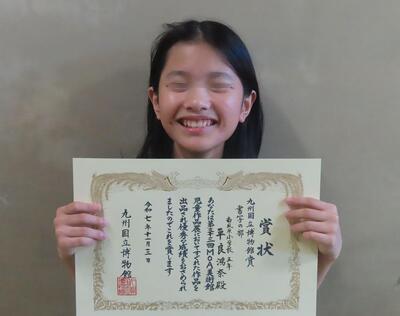 賞状
九州国立博物館賞
書写の部
小学校 五年
平良 鴻奈殿
あなたは第三十三回MOA美術館
児童作品展におすすめた作品を
出品され優秀な成績をおさめられ
ましたのでこれを賞します
令和七年十一月三日
九州国立博物館